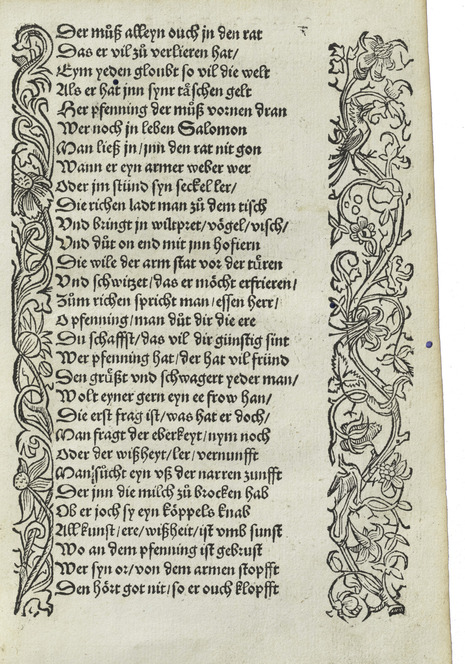 Der muͦß alleyn ouch jn den rat
Das er vil zuͦ verlieren hat/
Eym yeden gloubt so vil die welt
Als er hat jnn synr taͤschen gelt
Her pfenning der muͦß vornen dran
Wer noch jn leben Salomon
Man ließ jn/jnn den rat nit gon
Wann er eyn armer weber wer
Oder jm stuͤnd syn seckel ler/
Die richen ladt man zuͦ dem tisch
Vnd bringt jn wiltpret/voͤgel/visch/
Vnd duͦt on end mit jnn hofiern
Die wile der arm stat vor der tuͤren
Vnd schwitzet/das er moͤcht erfrieren/
Zuͦm richen spricht man/essen herr/
O pfenning/man duͦt dir die ere
Du schaffst/das vil dir günstig sint
Wer pfenning hat/der hat vil fründ
Den gruͤßt vnd schwagert yeder man/
Wolt eyner gern eyn ee frow han/
Die erst frag ist/was hat er doch/
Man fragt der eberkeyt/nym noch
Oder der wißheyt/ler/vernunfft
Man suͦcht eyn vß der narren zunfft
Der jnn die milch zuͦ brocken hab
Ob er joch sy eyn koͤppels knab
All kunst/ere/wißheit/ist vmb sunst
Wo an dem pfenning ist gebrust
Wer syn or/von dem armen stopfft
Den hoͤrt got nit/so er ouch klopfft